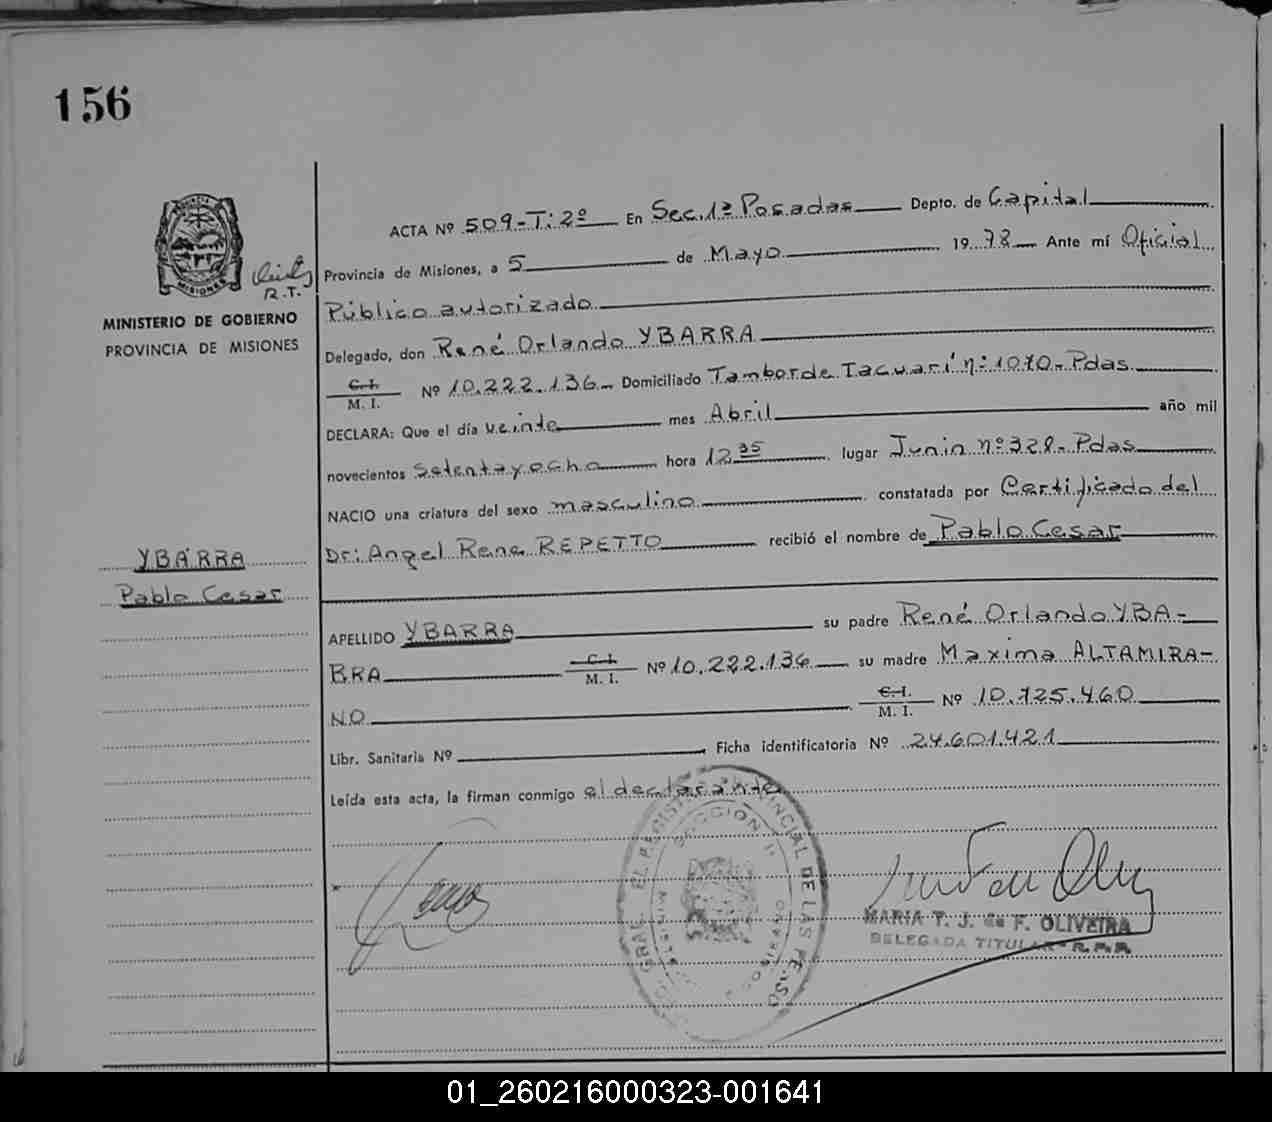 156
ACTA Nº 509-T: 2º En Sec. 1ª Posadas Depto. de Capital
Provincia de Misiones, a 5 de Mayo 1978 Ante mí Oficial
Público autorizado
Delegado, don René Orlando YBARRA
C. I. M. I. Nº 10.222.136 Domiciliado Tambor de Tacuarí nº 1070-Pdas.
DECLARA: Que el día veinte mes Abril año mil
novecientos setentayocho hora 12 35 lugar Junin nº 328-Pdas
NACIO una criatura del sexo masculino constatada por Certificado del
Dr: Angel Rene REPETTO recibió el nombre de Pablo Cesar
APELLIDO YBARRA su padre René Orlando YBA-
RRA C. I. M. I. Nº 10.222.136 su madre Maxima ALTAMIRA-
NO C. I. M. I. Nº 10.725.460
Libr. Sanitaria Nº Ficha identificatoria Nº 24.601.421
Leída esta acta, la firman conmigo el declarante
R.T.
MISIONES
MINISTERIO DE GOBIERNO
PROVINCIA DE MISIONES
YBARRA
Pablo Cesar
PROVINCIAL DE LAS PERSO
SECCION
MARIA T. J. de F. OLIVEIRA
DELEGADA TITULAR - R.P.P.
01_260216000323-001641